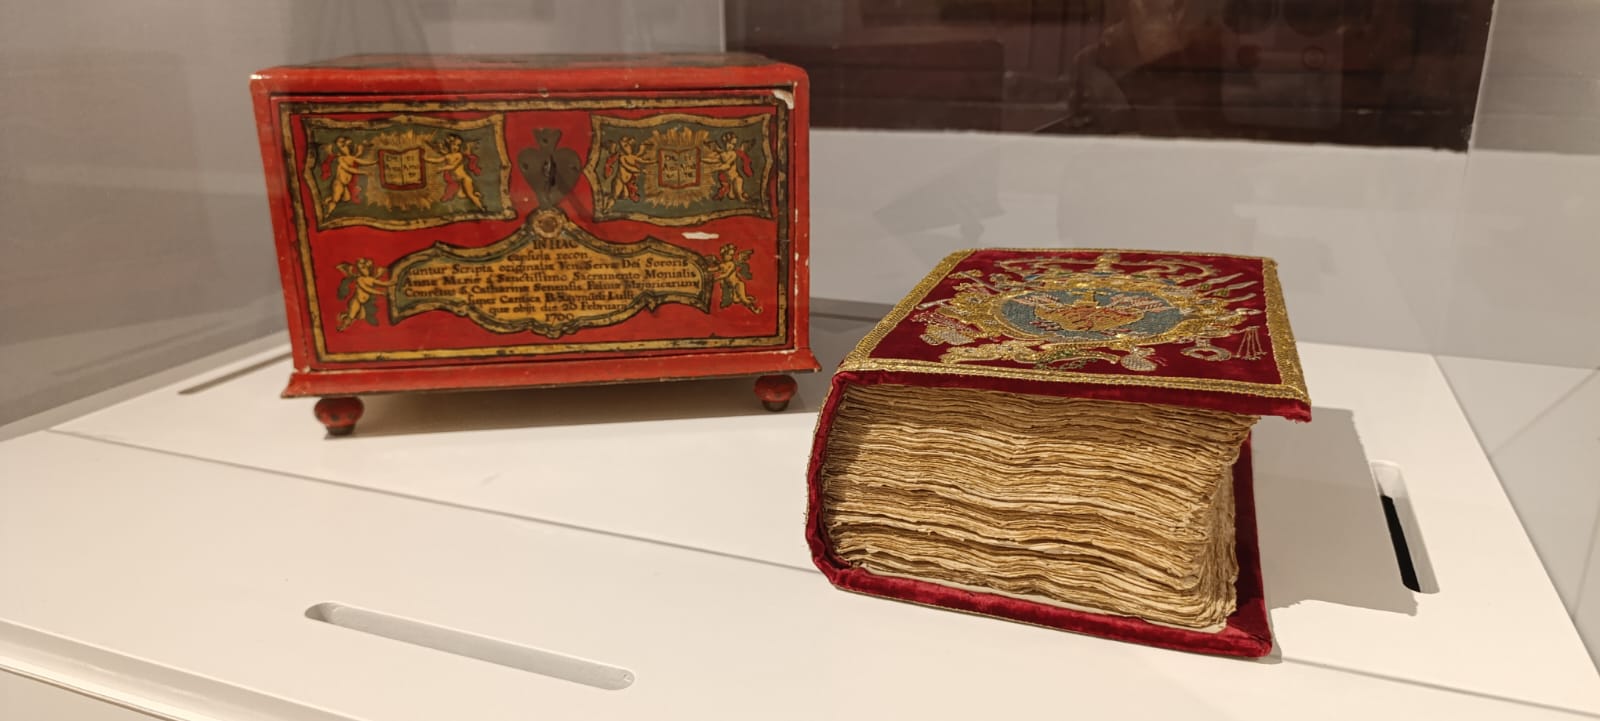 IN HAC
capsula recon
untur Scripta originalia Ven. Servæ Dei Sororis
Annæ Mariæ á Sanctissimo Sacramento Monialis
Conv̄tus S. Catharinæ Senensis, Palmæ Majoricarum
super Cantica B. Raymundi Lulli
quæ obijt die 20 Februarij
1700